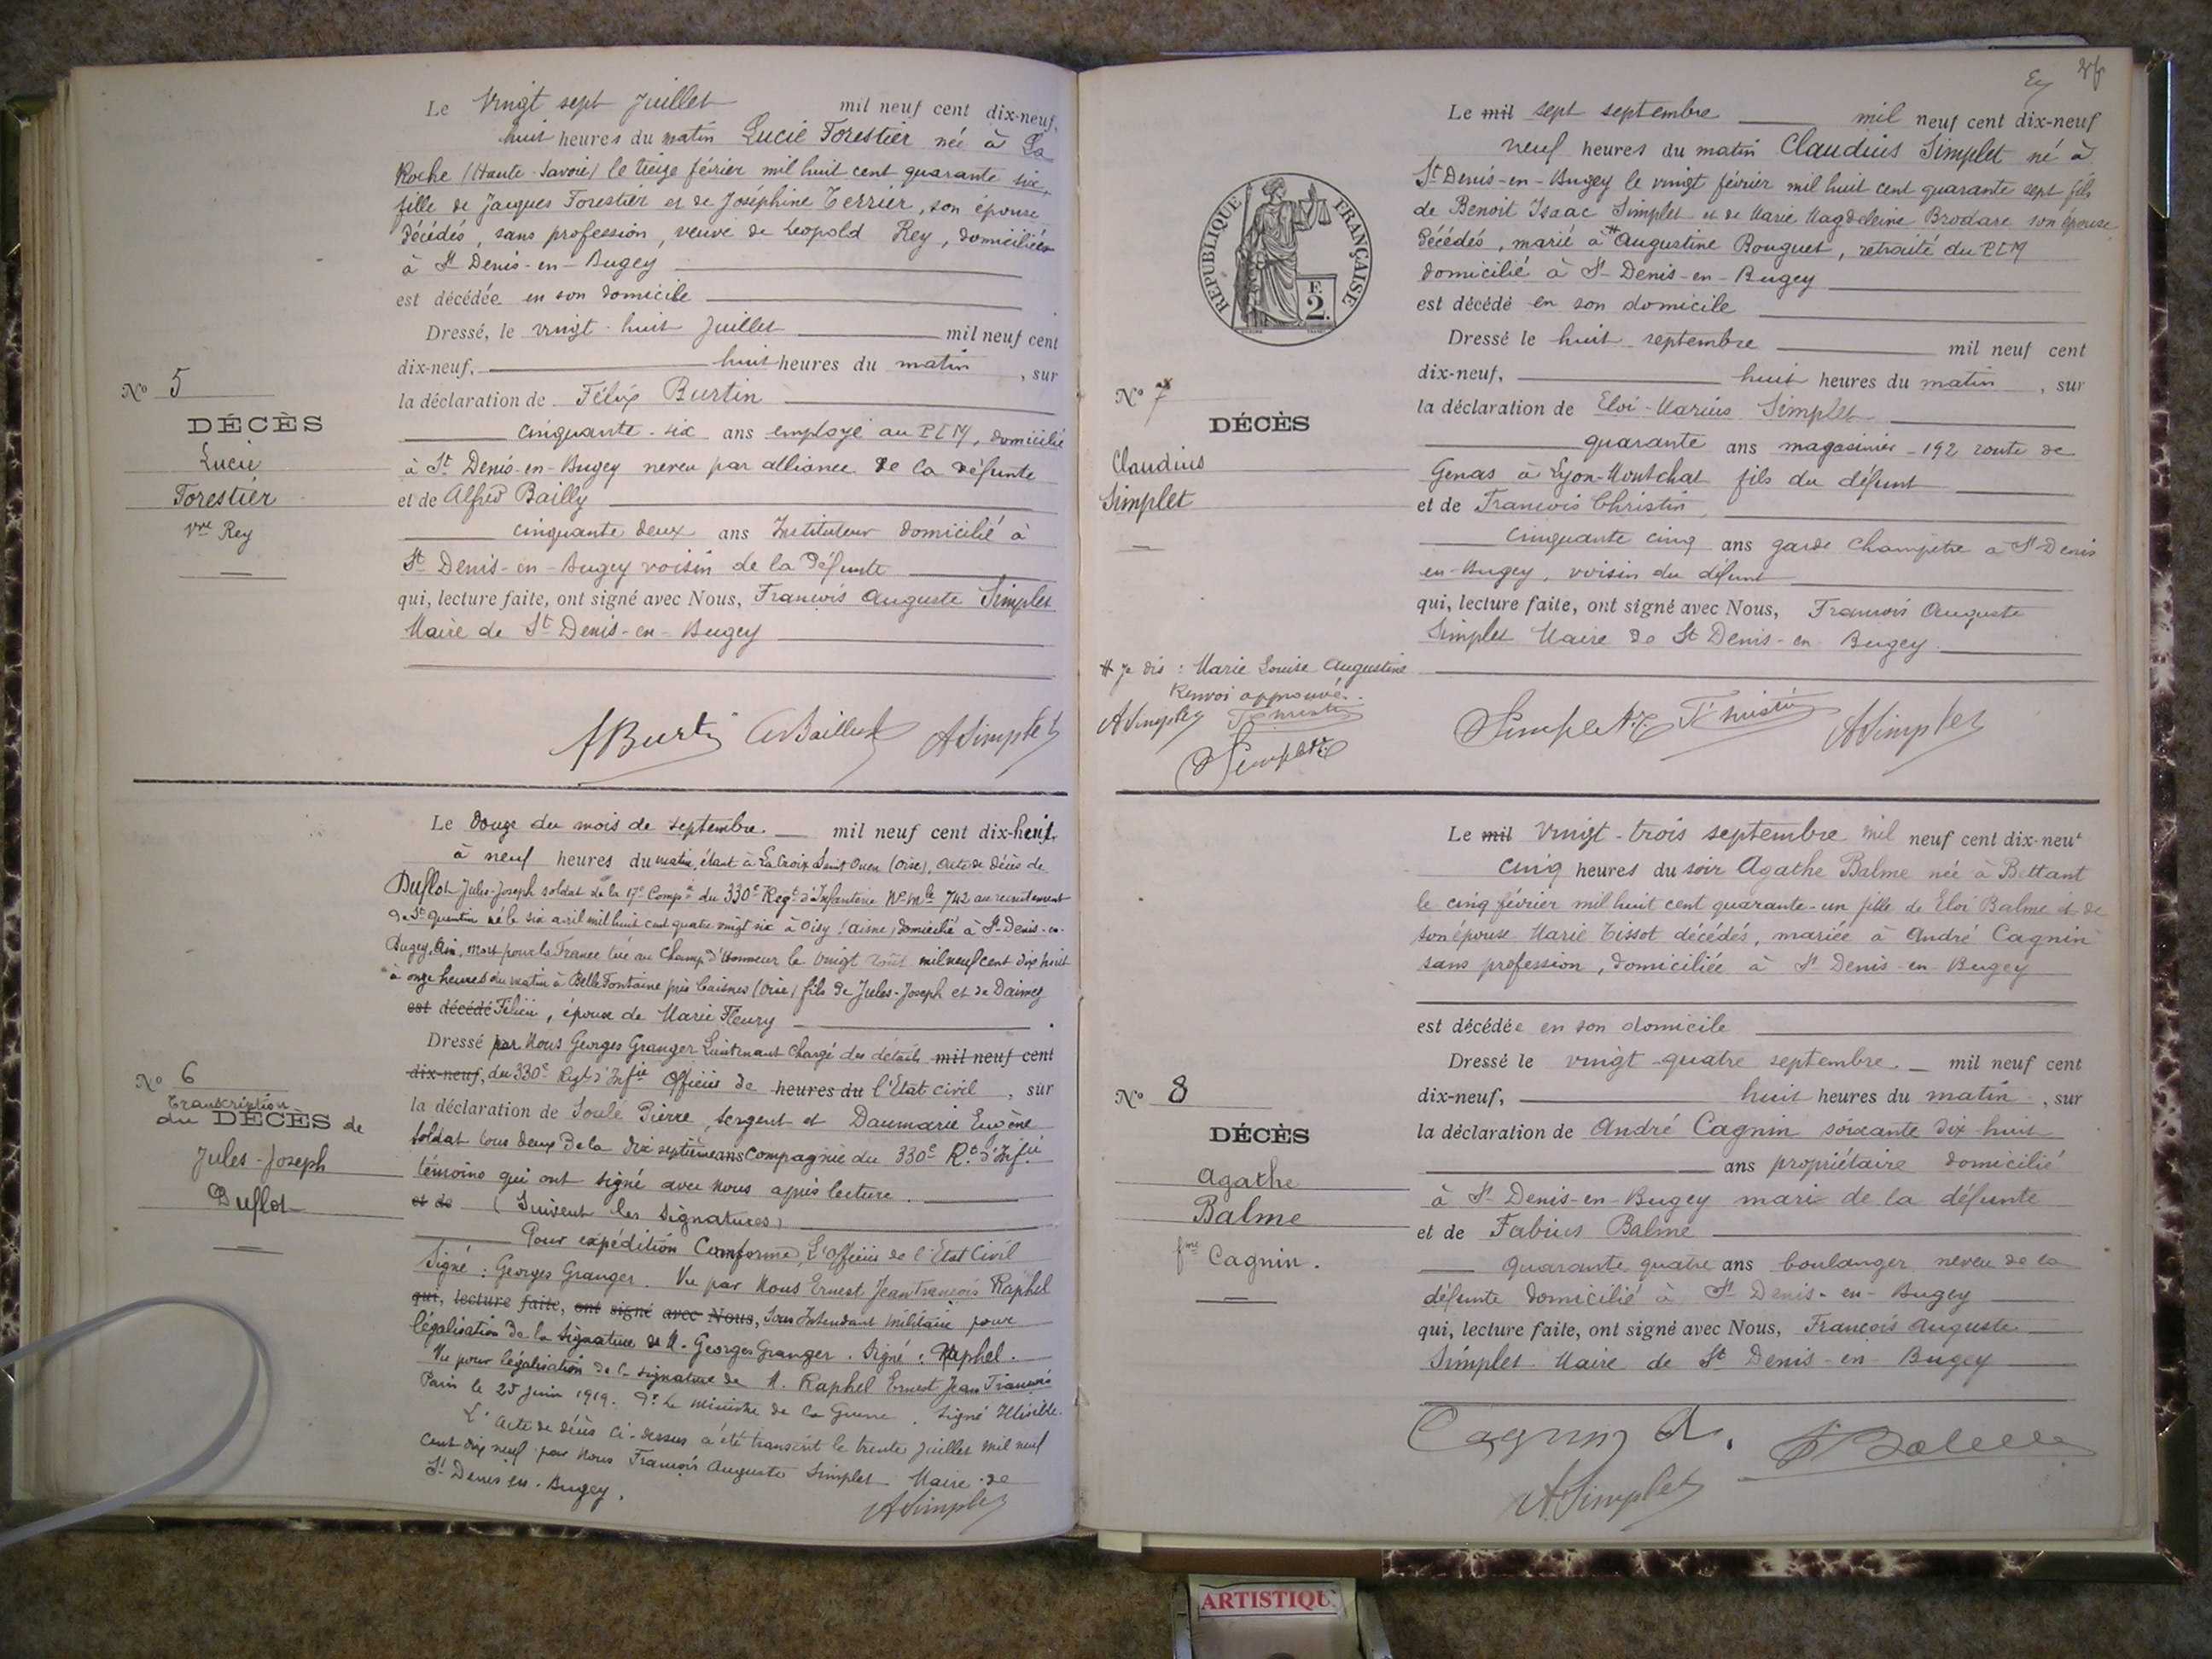 Le Vingt sept Juillet mil neuf cent dix-neuf,
huit heures du matin Lucie Forestier née à La
Roche (Haute-Savoie) le treize février mil huit cent quarante six,
fille de Jacques Forestier et de Joséphine Terrier, son épouse
décédés, sans profession, veuve de Léopold Rey, domiciliée
à St Denis-en-Bugey
est décédée en son domicile
Dressé, le vingt-huit Juillet mil neuf cent
dix-neuf, huit heures du matin, sur
la déclaration de Félix Burtin
cinquante-six ans employé au PLM, domicilié
à St Denis-en-Bugey neveu par alliance de la défunte
et de Alfred Bailly
cinquante deux ans Instituteur domicilié à
St Denis-en-Bugey voisin de la défunte
qui, lecture faite, ont signé avec Nous, François Auguste Simplet
Maire de St Denis-en-Bugey
No 5
DÉCÈS
Lucie
Forestier
vve Rey
FBurtin ABailly ASimplet
Le douze du mois de septembre mil neuf cent dix-huit,
à neuf heures du matin, étant à La Croix Saint Ouen (Oise), acte de décès de
Duflot Jules-Joseph soldat de la 17e Compie du 330e Regt d'Infanterie No Mle 742 au recrutement
de St Quentin né le six avril mil huit cent quatre vingt six à Oisy (Aisne) domicilié à St Denis-en-
Bugey, Ain, mort pour la France tué au Champ d'Honneur le vingt août mil neuf cent dix huit
à onze heures du matin à Belle Fontaine près Caisnes (Oise) fils de Jules-Joseph et de Daimez
est décédé Félicie, époux de Marie Fleury
Dressé par Nous Georges Granger Lieutenant chargé des détails mil neuf cent
dix-neuf, du 330e Regt d'Infie Officier de heures du l'Etat civil, sur
la déclaration de Soulé Pierre, sergent et Daumarie Eugène
soldat tous deux de la dix septième ans compagnie du 330e Rt d'Infie
témoins qui ont signé avec nous après lecture.
et de (Suivent les signatures)
Pour expédition Conforme, L'Officier de l'Etat Civil
Signé : Georges Granger. Vu par Nous Ernest Jean François Raphel
qui, lecture faite, ont signé avec Nous, Sous Intendant Militaire pour
légalisation de la signature de M. Georges Granger. Signé : Raphel.
Vu pour légalisation de la signature de M. Raphel Ernest Jean François
Paris le 25 Juin 1919. Pr Le Ministre de la Guerre. Signé Illisible.
L'acte de décès ci-dessus a été transcrit le trente Juillet mil neuf
cent dix neuf par Nous François Auguste Simplet Maire de
St Denis en-Bugey.
ASimplet
No 6
Transcription
du DÉCÈS de
Jules-Joseph
Duflot
Le mil sept septembre mil neuf cent dix-neuf
neuf heures du matin Claudius Simplet né à
St Denis-en-Bugey le vingt février mil huit cent quarante sept fils
de Benoit Isaac Simplet et de Marie Magdeleine Brodare son épouse
décédés, marié à # Augustine Bouguet, retraité du PLM
domicilié à St Denis-en-Bugey
est décédé en son domicile
Dressé le huit septembre mil neuf cent
dix-neuf, huit heures du matin, sur
la déclaration de Eloi-Marius Simplet
quarante ans magasinier 192 route de
Genas à Lyon-Montchat fils du défunt
et de François Christin,
cinquante cinq ans garde champêtre à St Denis
en-Bugey, voisin du défunt
qui, lecture faite, ont signé avec Nous, François Auguste
Simplet Maire de St Denis-en-Bugey
RÉPUBLIQUE FRANÇAISE
F.
2.
No 7
DÉCÈS
Claudius
Simplet
# Je dis : Marie Louise Augustine
Renvoi approuvé.
ASimplet
ASimplet
Le mil Vingt-trois septembre mil neuf cent dix-neuf
cinq heures du soir Agathe Balme née à Bettant
le cinq février mil huit cent quarante-un fille de Eloi Balme et de
son épouse Marie Tissot décédés, mariée à André Cagnin
sans profession, domiciliée à St Denis-en-Bugey
est décédée en son domicile
Dressé le vingt-quatre septembre mil neuf cent
dix-neuf, huit heures du matin, sur
la déclaration de André Cagnin soixante dix-huit
ans propriétaire domicilié
à St Denis-en-Bugey mari de la défunte
et de Fabius Balme
quarante quatre ans boulanger neveu de la
défunte domicilié à St Denis-en-Bugey
qui, lecture faite, ont signé avec Nous, François Auguste
Simplet Maire de St Denis-en-Bugey
No 8
DÉCÈS
Agathe
Balme
fme Cagnin.
Cagnin A. FBalme
ASimplet
ARTISTIQU